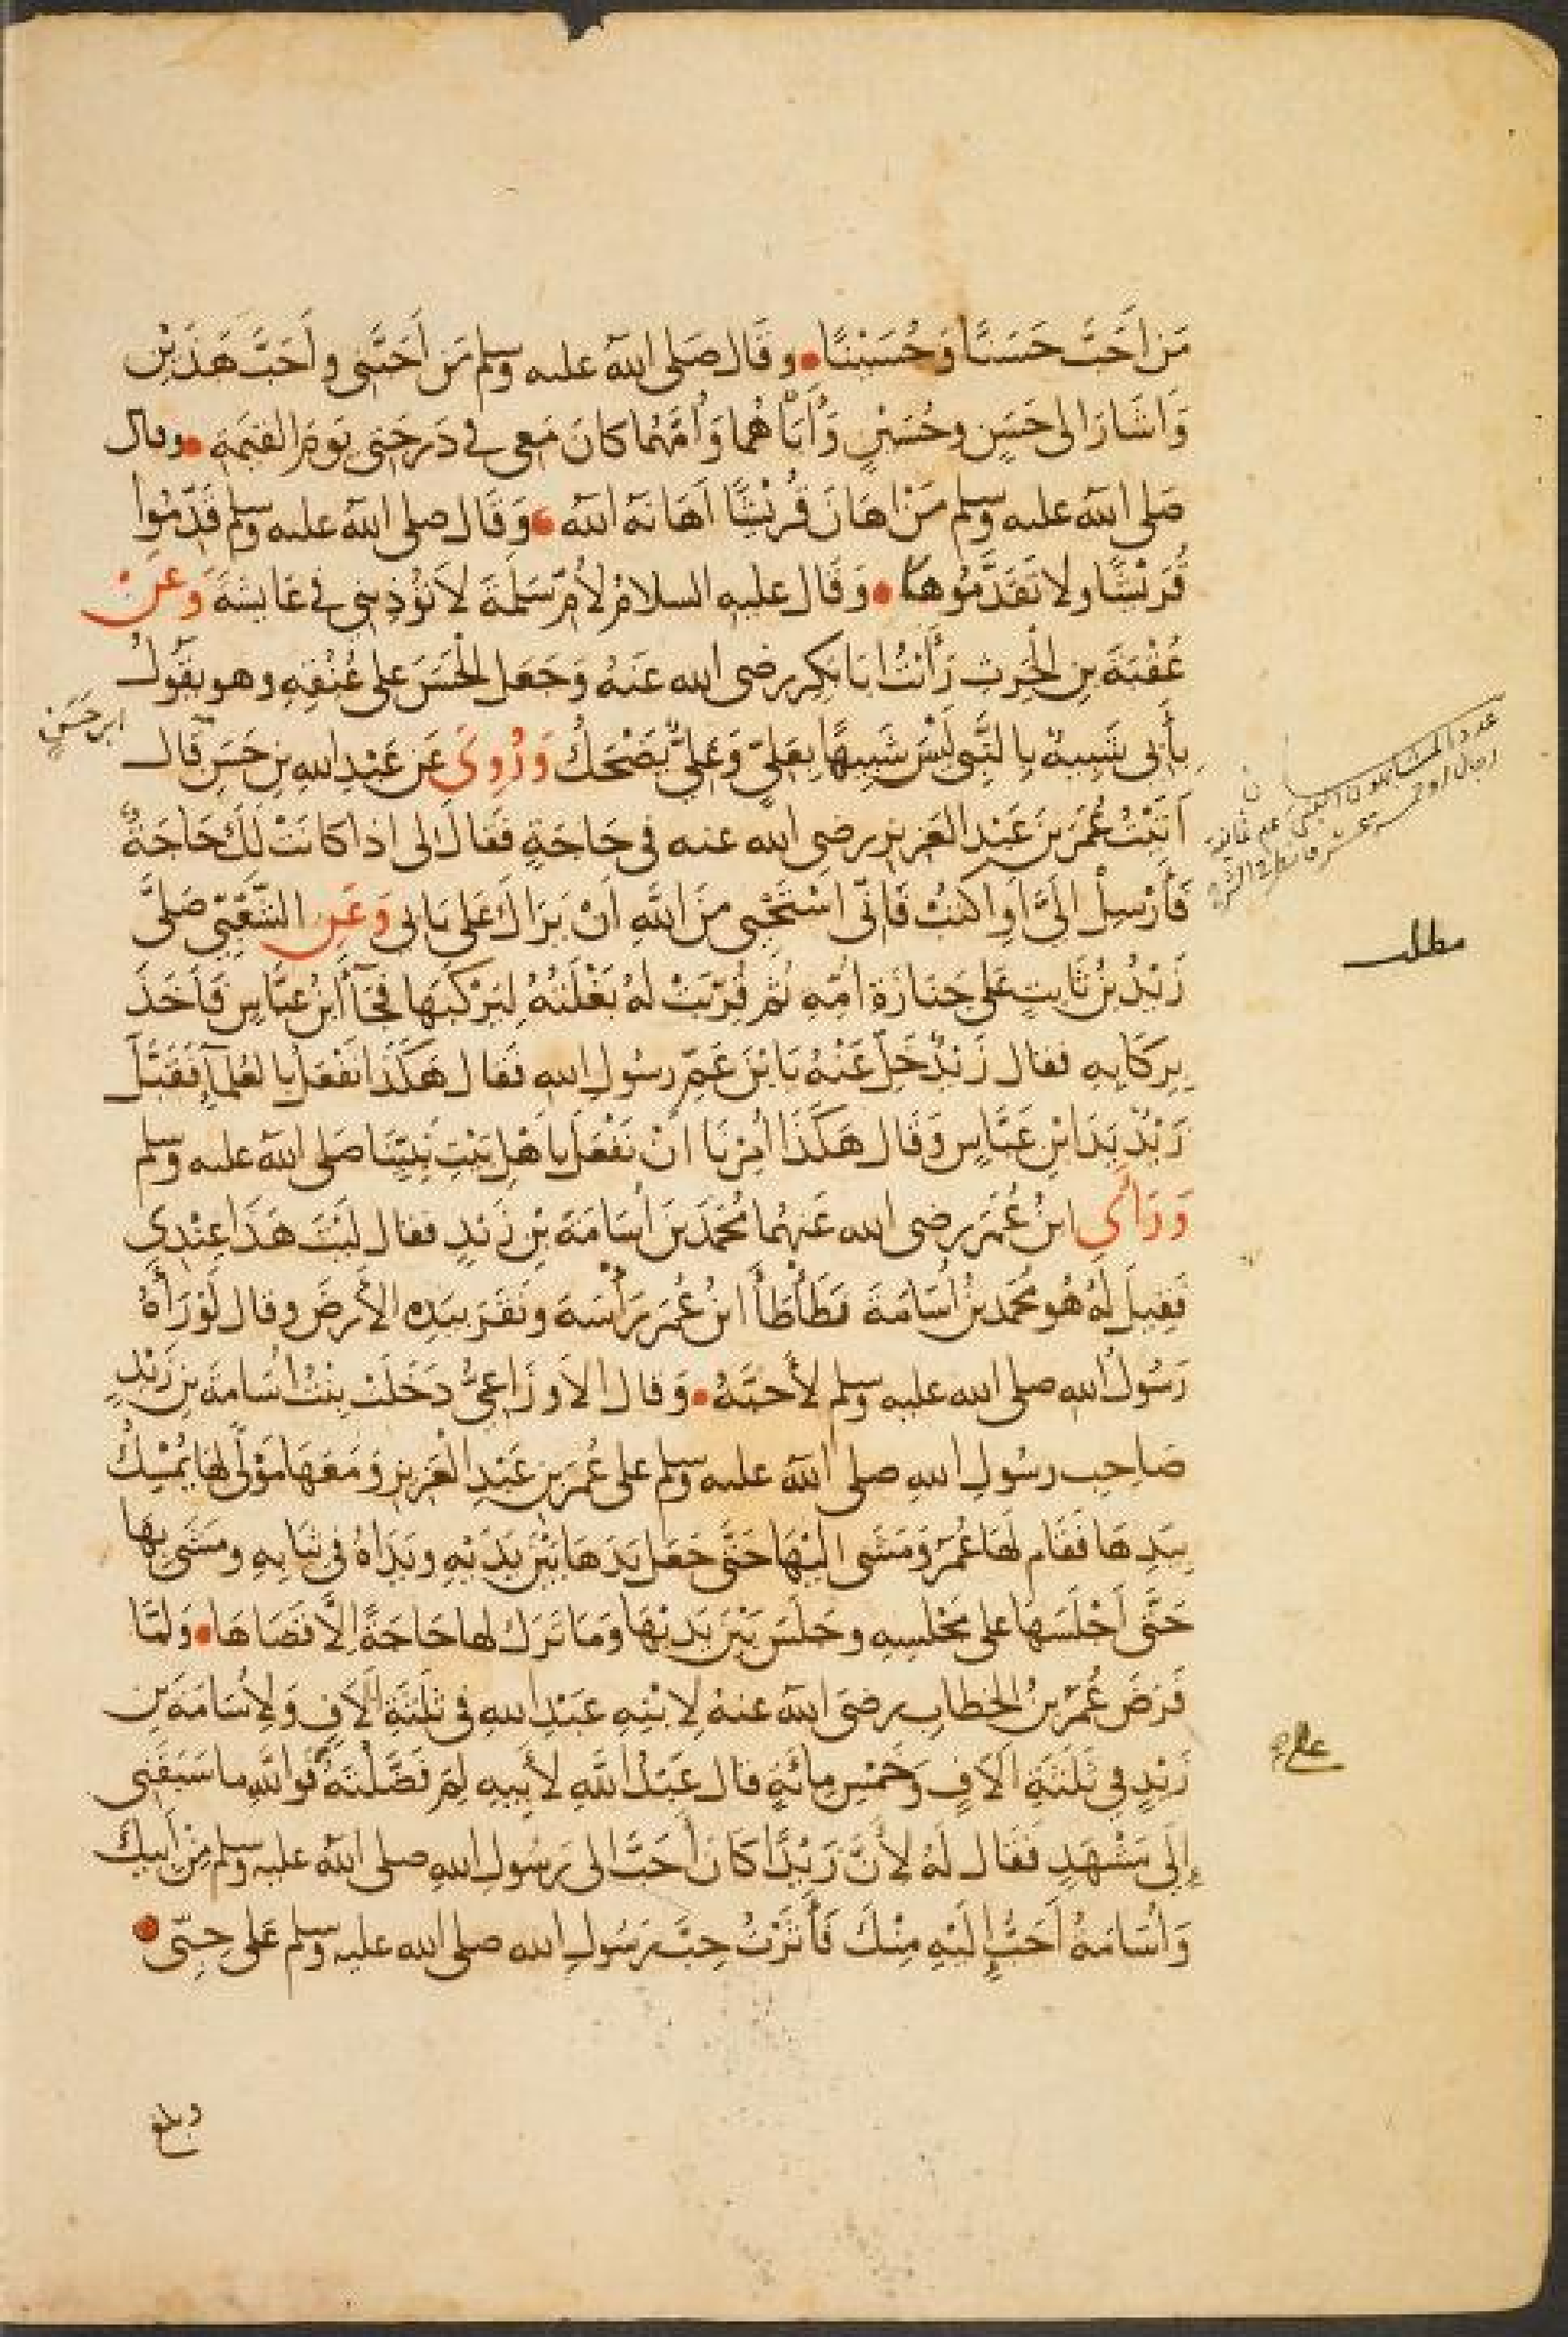 مَن اَحَبَّ حَسَنًا وَحُسَيْنًا • وقَال صَلى اللهُ عليه وسلم مَن اَحَبَّنى واَحَبَّ هَذَيْن
وَاَشَارَ الى حَسَنٍ وحُسَيْنٍ وَأَبَاهُما وَأُمَّهُما كانَ مَعِى فى دَرجَتى يَومَ القيمَةِ • وقال
صَلى اللهُ عليه وسلم مَنْ اهَانَ قُرَيْشًا اَهَانَهُ اللهُ • وَقَال صلى اللهُ عليه وسلم قَدِّمُوا
قُرَيْشًا ولا تَقَدَّمُوهَا • وَقَال عليهِ السلامُ لأُمّ سَلَمَةَ لاَ تُؤْذِينى فى عَايشَةَ وَعَنْ
عُقْبَةَ بنِ الْحرِثِ رَأَيْتُ ابَا بَكرٍ رضى الله عَنهُ وَجَعَل الْحَسَنَ على عُنُقِهِ وهو يقُولُ
بِأَبِى شَبِيهٌ بِالنَّبِى لَيْسَ شَبِيهًا بِعَلِىٍّ وَعَلِىٌّ يَضْحَكُ وَرُوِىَ عَن عَبْدِ اللهِ بنِ حَسَنٍ قَال
ابن حسَنٍ
اَتَيْتُ عُمَرَ بنَ عَبْد العَزِيزِ رضى اللهُ عنه فى حَاجَةٍ فَقَالَ لى اذا كانَتْ لَكَ حَاجَةٌ
فَأَرْسِلْ اِلَىَّ اَوِ اكتُبْ فَانّى اسْتَحْيى منَ اللهِ اَنْ يَرَاكَ عَلى بَابى وَعَنِ الشَّعْبِّى صَلىَّ
زَيْدُ بنُ ثَابِتٍ عَلى جَنَازَةِ اُمّهِ ثُم قُرِّبَتْ لهُ بَغْلَتُهُ ليَرْكَبَهَا فَجَآ ابنُ عبَّاسٍ فَأَخَذَ
بِركَابِهِ فقال زَيْدٌ خَلِّ عَنْهُ يَا بْنَ عَمِّ رسُولِ اللهِ فَقال هَكَذَا نَفْعَل بالعُلمآءِ فَقَبَّلَ
زَيْدٌ يَدَ ابنِ عَبَّاسٍ وَقَال هَكَذَا اُمِرْنَا انْ نَفْعَل بِاَهْلِ بَيْتِ نَبِيِّنَا صَلى اللهُ عليه وسلم
وَرَاَى ابنُ عُمَرَ رضى الله عَنهُما مُحَمَّدَ بنَ اُسَامَةَ بْنِ زَيْدٍ فقال لَيْتَ هَذَا عِنْدِى
فَقِيلَ لَهُ هُو مُحَمَدُ بنُ اُسَامَةَ فطَأْطَأَ ابنُ عُمَرَ رَأْسَهَ ونَقَرَ بِيَدِهِ الأَرضَ وقال لَوْ رَأَهُ
رَسُولُ اللهِ صلى الله عليه وسلم لأَحَبَّهُ • وَقال الاَوزَاعِىُّ دَخَلَتْ بِنْتُ اُسَامةَ بنِ زَيْدٍ
صَاحِبِ رسُولِ اللهِ صلى اللهُ عليه وسلم على عُمَرَ بنِ عَبْدِ الْعَزِيزِ وَمَعَهَا مَوْلًى لها يُمْسِكُ
بِيَدِهَا فَقَام لَهَا عُمَرُ وَمَشَى اليْهَا حَتَّى جَعَل يَدَهَا بَيْنَ يَدَيْهِ ويَدَاهُ فى ثيَابِهِ ومَشَى بِهَا
حَتَّى اَجْلَسَهَا على مَجْلسِهِ وجلَسَ بَيْنَ يَدَيْهَا وَمَا تَرَك لها حَاجَةً اِلاَّ قَضَاهَا • وَلمَّا
فَرَضَ عُمَرُ بنُ الخطابِ رضى اللهُ عنهُ لابْنِهِ عَبْدِ اللهِ فى ثلَثَةِ الاَفٍ وَلاُسَامَةَ بنِ
زَيْدٍ فِى ثَلَثَةِ الاَفٍ وَخَمْسِ مائَةٍ قال عَبْدُ اللهِ لأَبِيهِ لِمَ فَضَّلْتَهُ فَواللهِ ما سَبَقَنِى
إِلَى مَشْهَدٍ فَقَال لَهُ لأَنَّ زَيْدًا كَانَ اَحَبَّ الى رَسُولِ اللهِ صلى اللهُ عليه وسلم مِنْ اَبيكَ
وَاُسَامَةُ اَحَبُّ إِلَيْهِ مِنْكَ فَأثَرْتُ حِبَّ رَسُولِ الله صلى الله عليه وسلم عَلى حِبّى •
مطلب